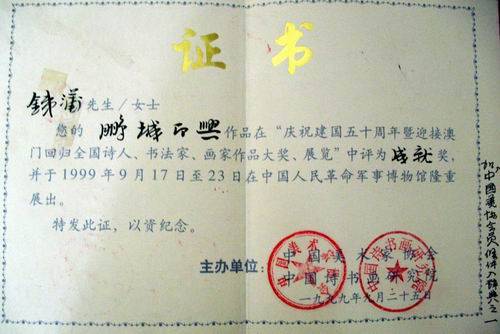 证书
先生/女士
您的 鹏城印兴 作品在“庆祝建国五十周年暨迎接澳
门回归全国诗人、书法家、画家作品大奖、展览”中评为成就奖，
并于1999年9月17日至23日在中国人民革命军事博物馆隆重
展出。
特发此证，以资纪念。
主办单位：
中国美术家协会
中国诗书画研究院
一九九九年九月二十五日